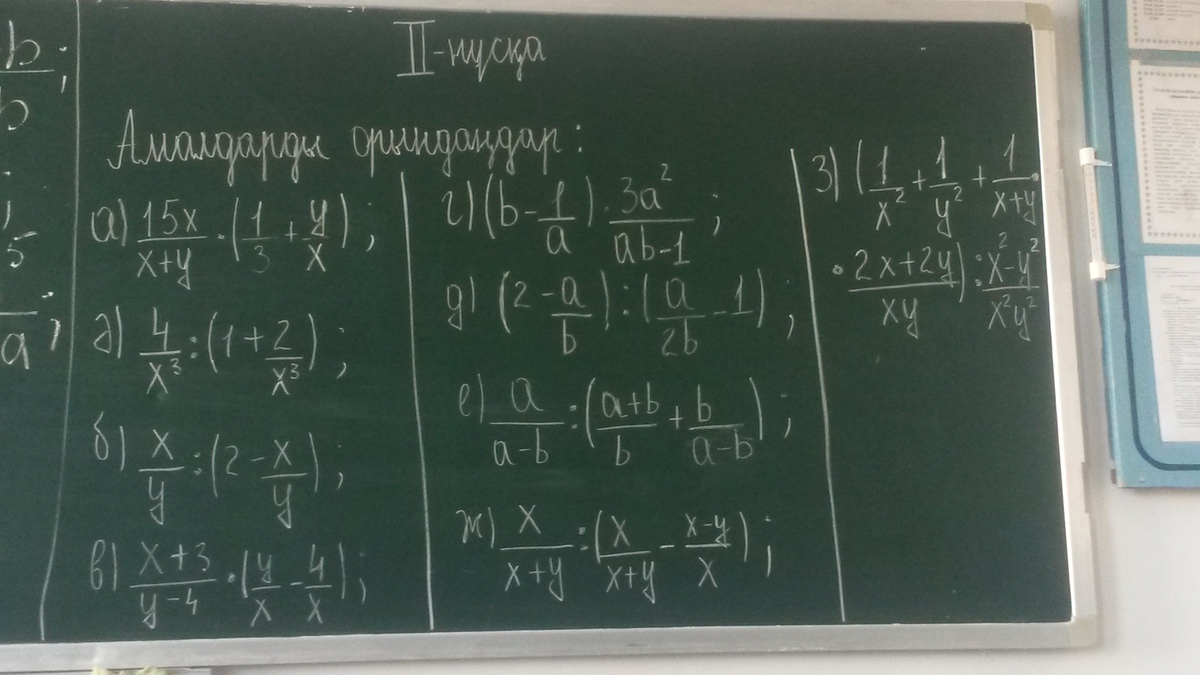 b/b;
5
a;
II-нұсқа
Амалдарды орындаңдар:
а) 15x/(x+y) · (1/3 + y/x);
ә) 4/x³ : (1 + 2/x³);
б) x/y : (2 - x/y);
в) (x+3)/(y-4) · (y/x - 4/x);
г) (b - 1/a) · 3a²/(ab-1);
д) (2 - a/b) : (a/2b - 1);
е) a/(a-b) : ((a+b)/b + b/(a-b));
ж) x/(x+y) : (x/(x+y) - (x-y)/x);
з) (1/x² + 1/y² + 1/(x+y) ·
· (2x+2y)/xy) : (x²-y²)/x²y²